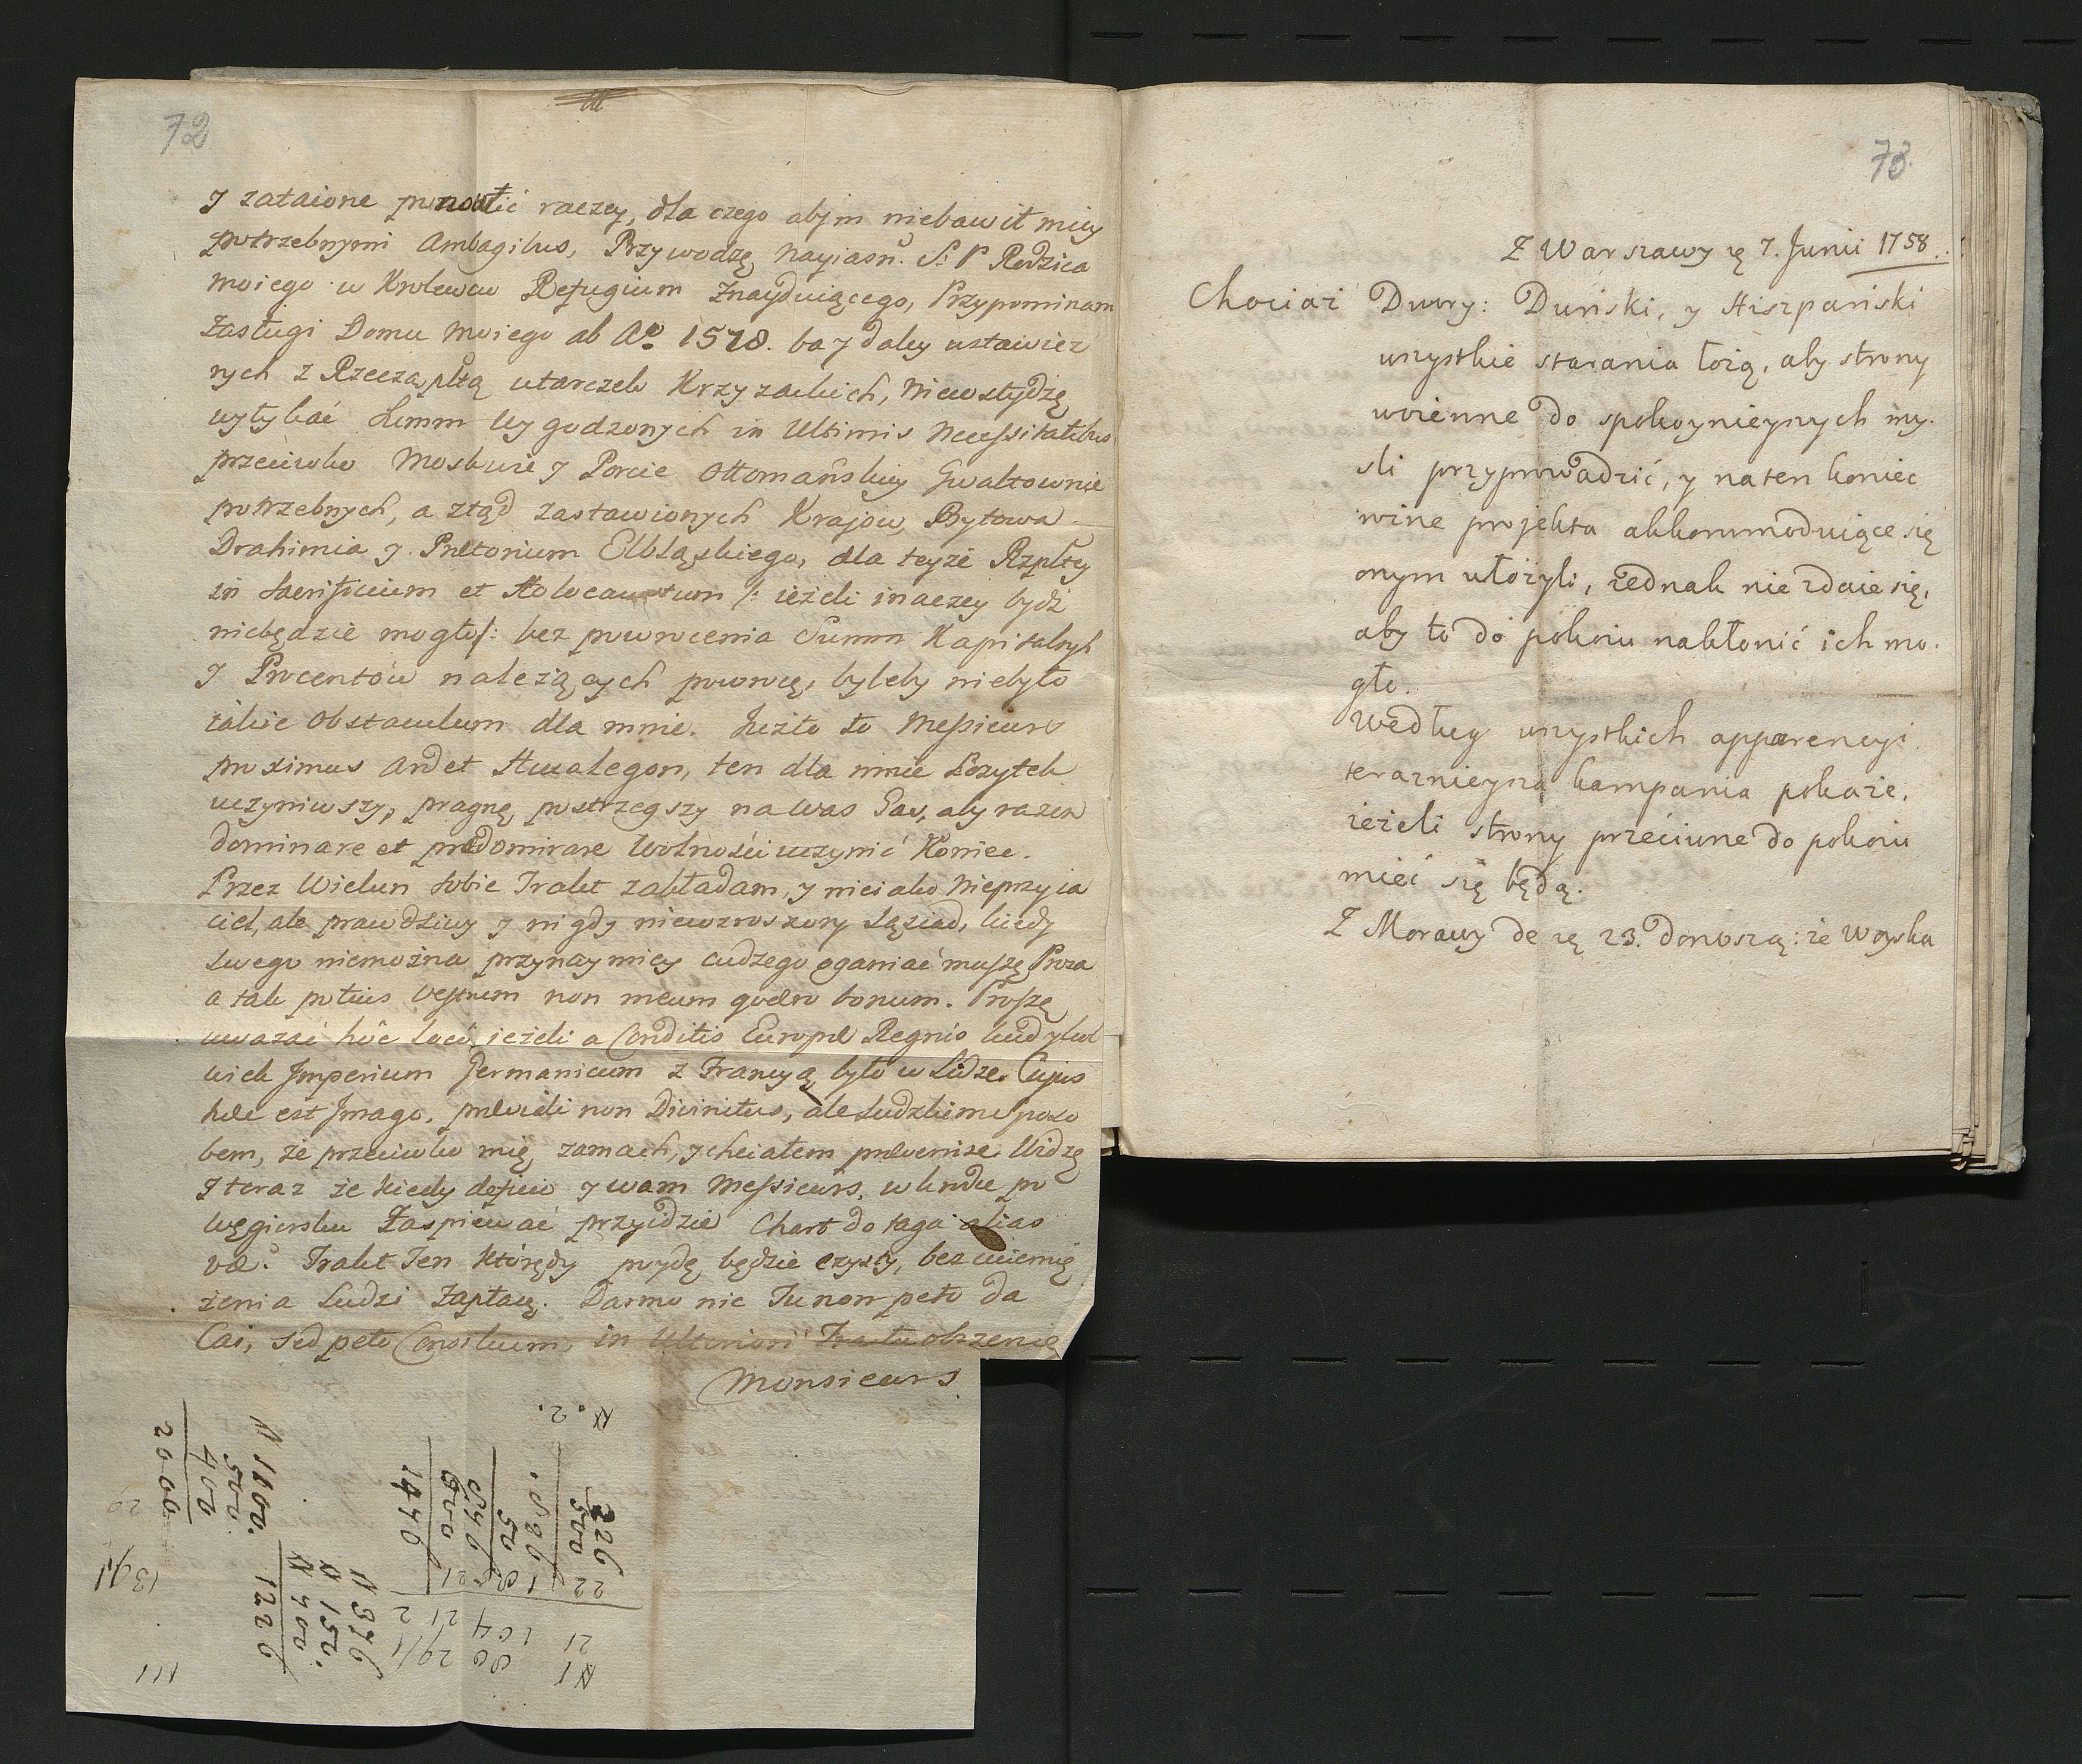 72
y zataione ponowić raczey, dla czego abym niebawił mięy
potrzebnymi Ambagibus, Przywodzę Nayiasn. S: P Rodzica
moiego w Krolewcu Refugium Znayduiącego, Przypominam
Zasługi Domu moiego ab Aº 1578. ba y daley ustawicz
nych z Rzecząpltą utarczek Krzyzackich, niewstydzę
wytykać Summ wygodzonych in Ultimis Necessitatibus
przeciwko Moskwie y Porcie Ottomańskiey Gwałtownie
potrzebnych, a ztąd zastawionych Krajow, Bytowa
Drahimia y Prætorium Elbląskiego, dla teyże Rzpltey
in Sacrificium et Holocaustum /: ieżeli inaczey bydź
niebędzie mogło /: bez powrocenia Summ Kapitalnych
y Procentow należących powrocę, byleby niebyło
iakie Obstaculum dla mnie. Jużto to Messieurs
proximus ardet Ucalegon, ten dla mnie Pożytek
uczyniwszy, pragnę postrzegszy na was Pas, aby razem
dominare et prædominare Wolności uczynić Koniec.
Przez Wielun sobie Trakt zakładam, y nie iako Nieprzyia
ciel, ale prawdziwy y nigdy niewzroszony Sąsiad, kiedy
swego niemożna przynaymniey cudzego oganiać muszę Proza
a tak potius vestrum non meum quæro bonum. Proszę
uważać hôc locô ieżeli a Conditis Europæ Regnis kiedykol
wiek Imperium Germanicum z Francyą było w Lidze. Cujus
hæc est Imago, prævidi non Divinitus, ale Ludzkim sposo
bem, że przeciwko mię zamach, y chciałem prævenire. Widzę
y teraz że kiedy
y wam Messieurs, w krotce po
węgiersku Zaspiewać przyidzie
alias
væ. Trakt Ten którędy poydę będzie czysty, bez uciemię
żenia Ludzi Zapłacę. Darmo nic Tu non peto da
Cai, sed peto Consilium, in Ulteriori Tractu obszernie
Monsieurs
N. 2.
226
500
826
50
876
600
1476
N 1100.
500.
400
2000
N 376
N 150.
N 700.
1226
1391
111
73
Z Warszawy ię 7. Junii 1758.
Chociaż Dwory: Duński, y Hiszpański
wszystkie starania łożą, aby strony
woienne do spokoynieyszych my-
sli przyprowadzić, y na ten koniec
rożne projekta akkommoduiące się
onym ułożyli, iednak nie zdaie się,
aby to do pokoiu nakłonić ich mo-
gło.
Według wszystkich apparencyi
teraznieysza kampania pokaże,
ieżeli strony przeciwne do pokoiu
mieć się będą.
Z Morawy de ię 23. donoszą: że woyska